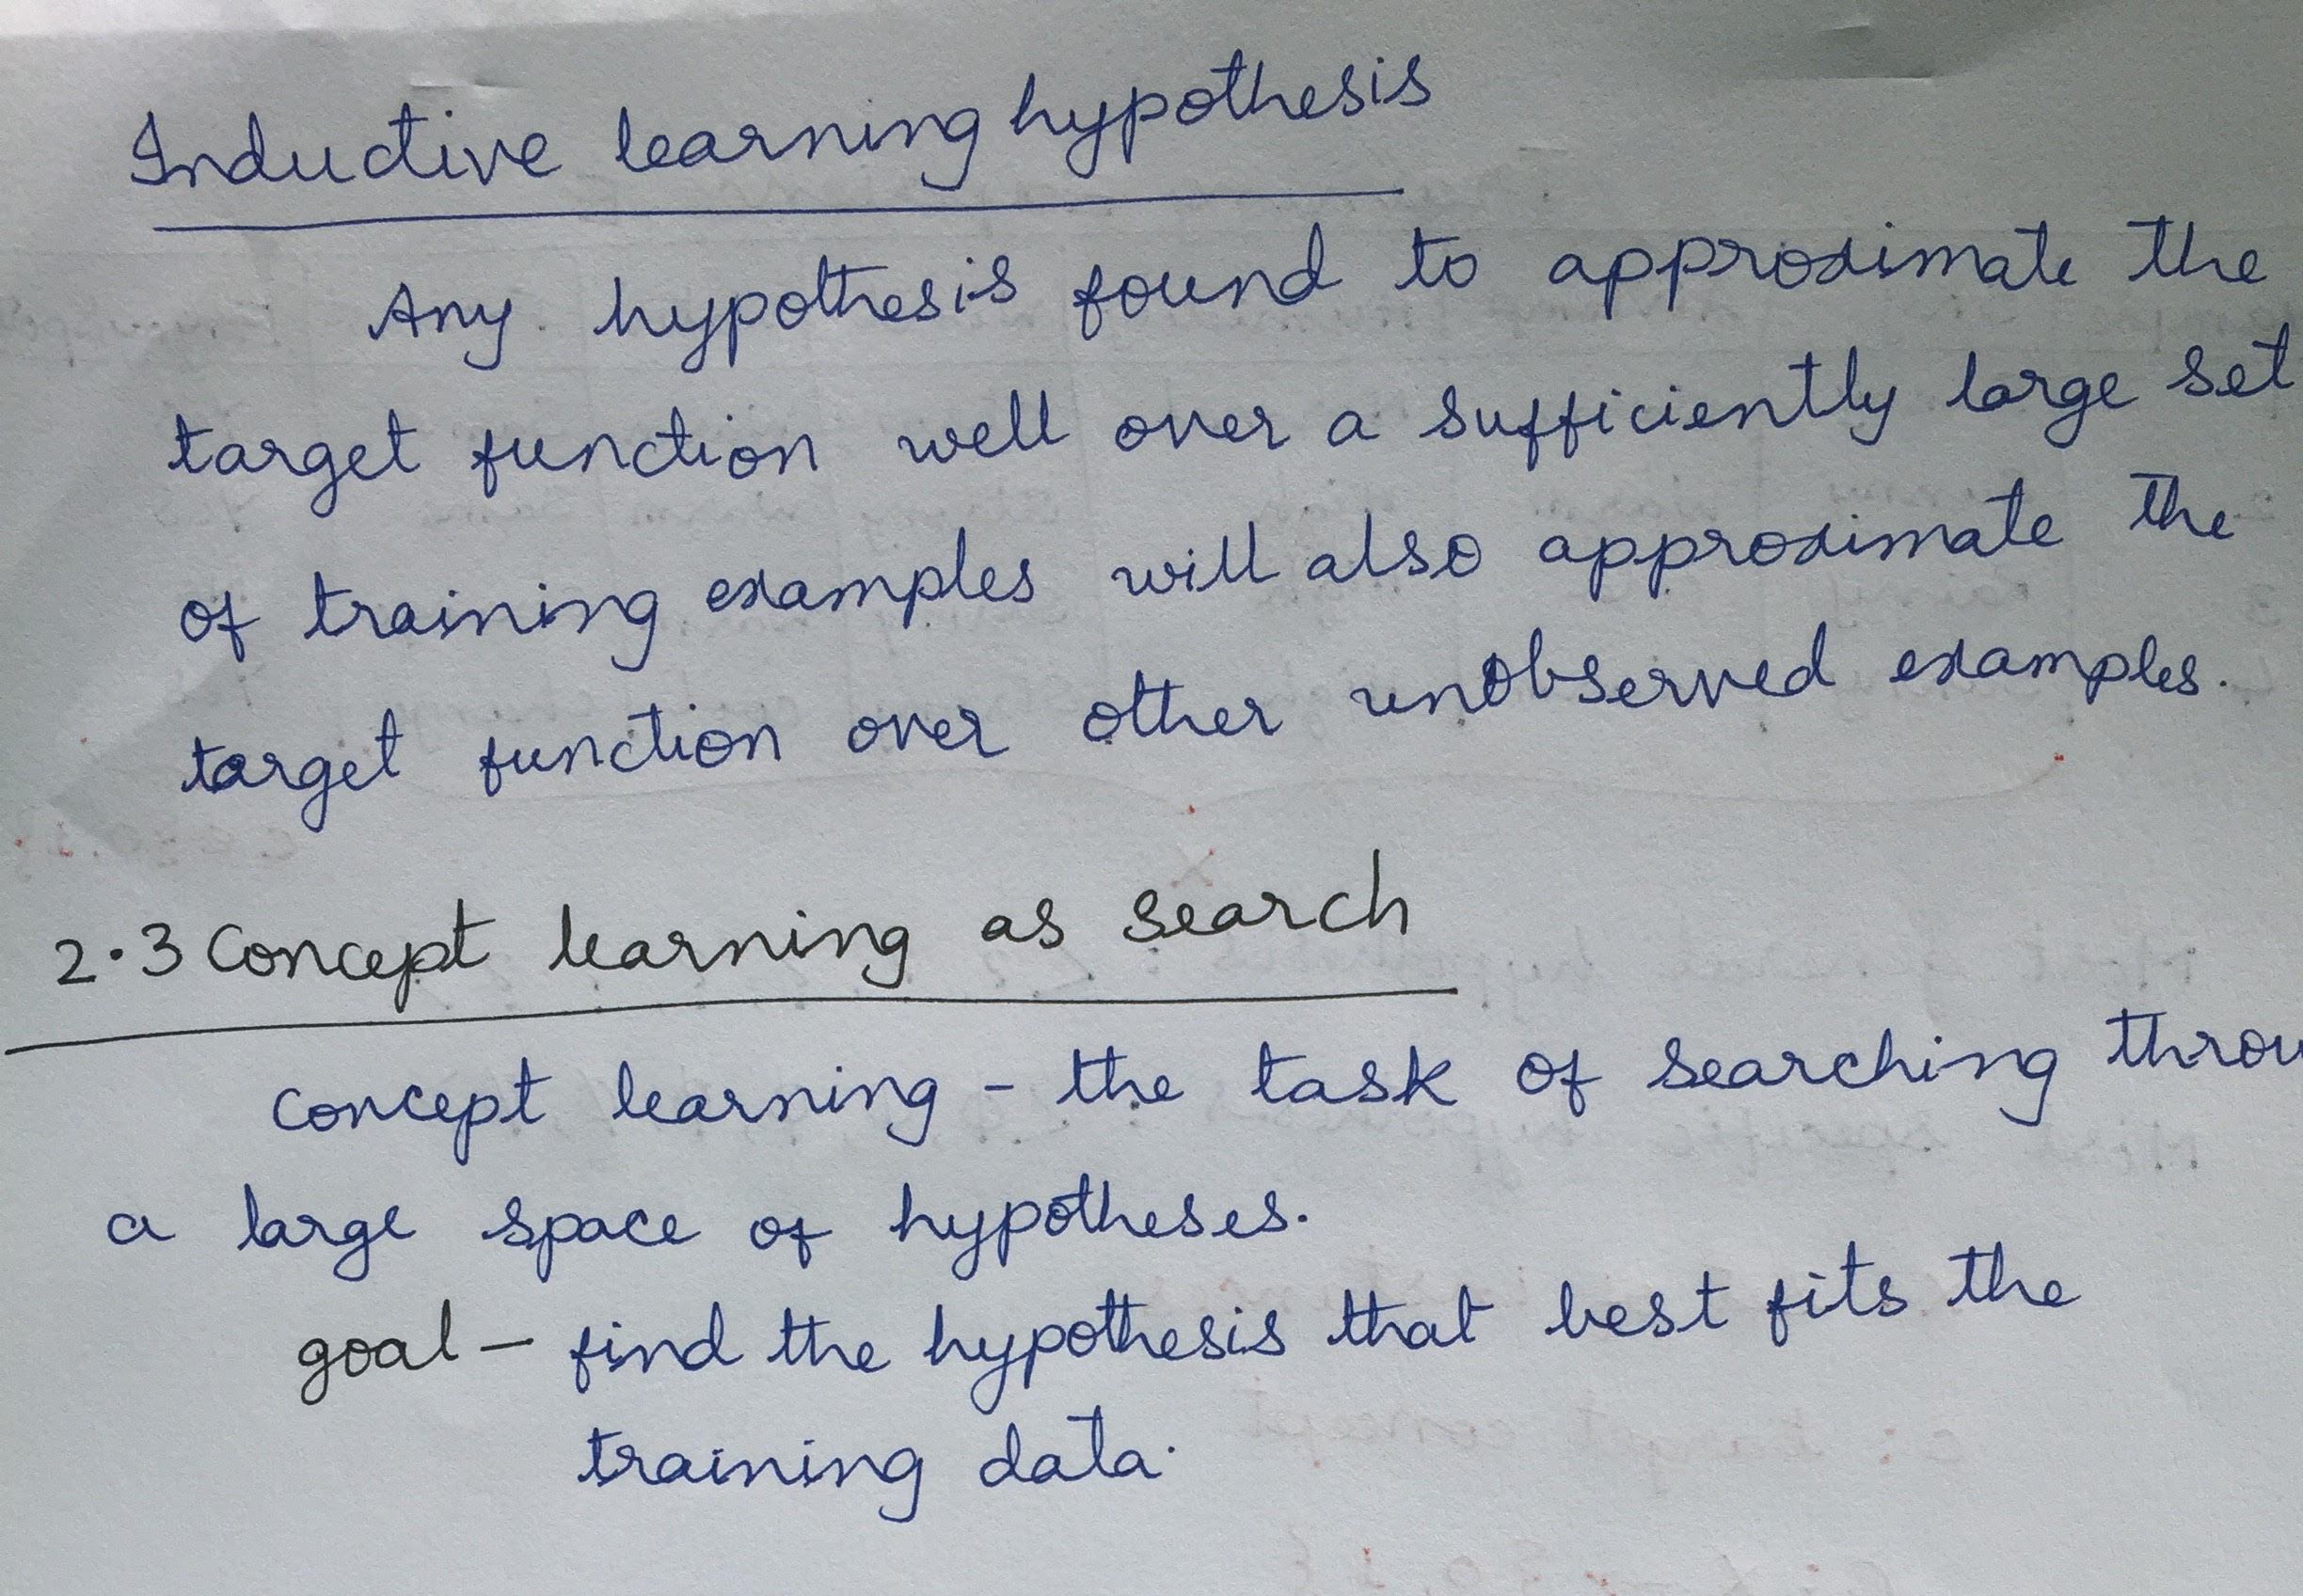 Inductive learning hypothesis
Any hypothesis found to approximate the
target function well over a sufficiently large set
of training examples will also approximate the
target function over other unobserved examples.
2.3 Concept learning as search
Concept learning - the task of searching throu
a large space of hypotheses.
goal - find the hypothesis that best fits the
training data.